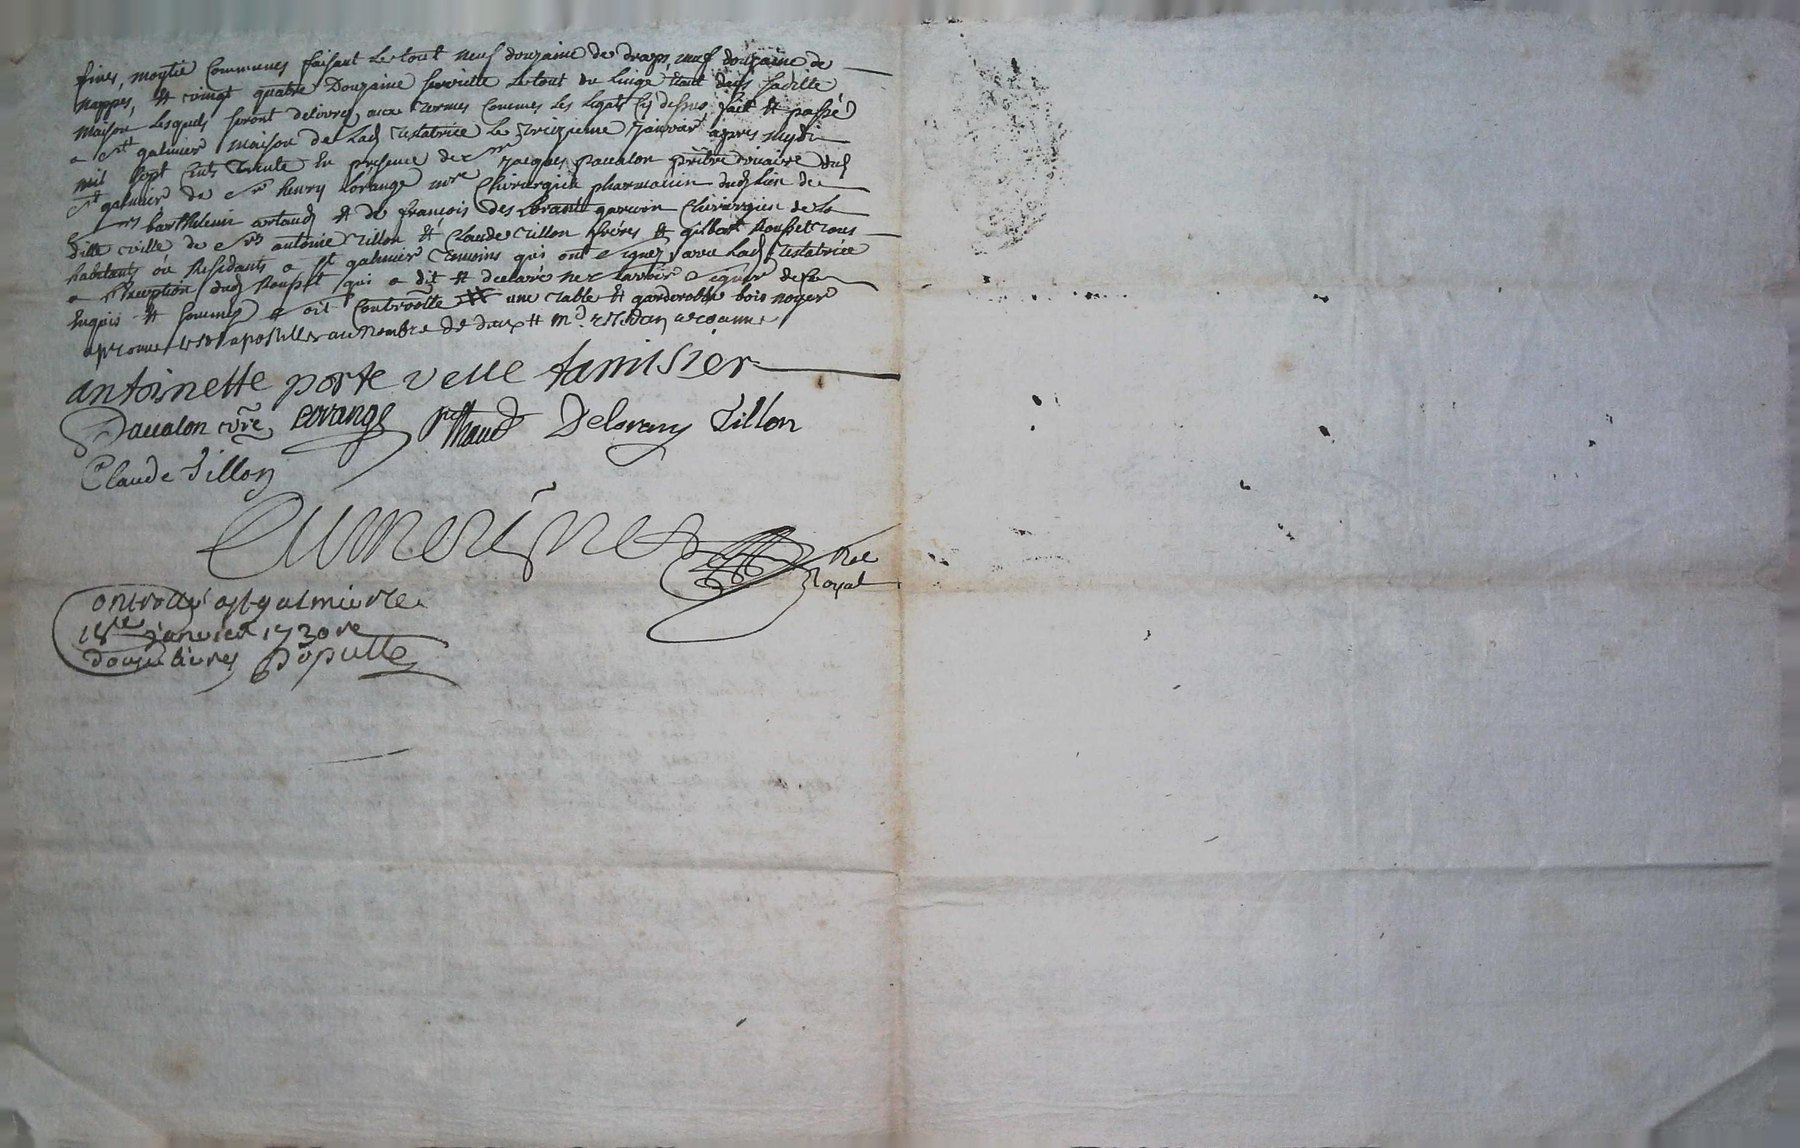 fines, moytié Communes faisant le tout neuf douzaine de draps, neuf douzaine de
nappes, et vingt quatre Douzaine serviette le tout du linge etant dans saditte
maison lesquels seront delivres aux termes Commes les legats cy dessus fait et passé
a St galmier maison de lad testatrice le treizieme Janvier apres mydi
mil sept cents trente en presence de Mre Jacques Davalon prêtre vicaire dud
St galmier de Sr henry Corange mre Chirurgien pharmacien dud lieu de
barthelemi artaud et de françois des garçon Chirurgien de la
ditte ville de Srs antoine tillon et Claude tillon freres et gilbert Rousset tous
habitants ou Residants a St galmier temoins qui ont Signes avec lad testatrice
a l'exception dud Rousset qui a dit et declaré ne Scavoir Signer de ce
Enquis et sommes et oit Controolle une table et garderobbe bois noyer
aprouve les apostilles au nombre de deux
antoinette porte veve tamisier
Davalon vire Corange Delorans Tillon
Claude Tillon
Rel
Royal
Controllé a St galmier le
18e janvier 1730 re
douze livres